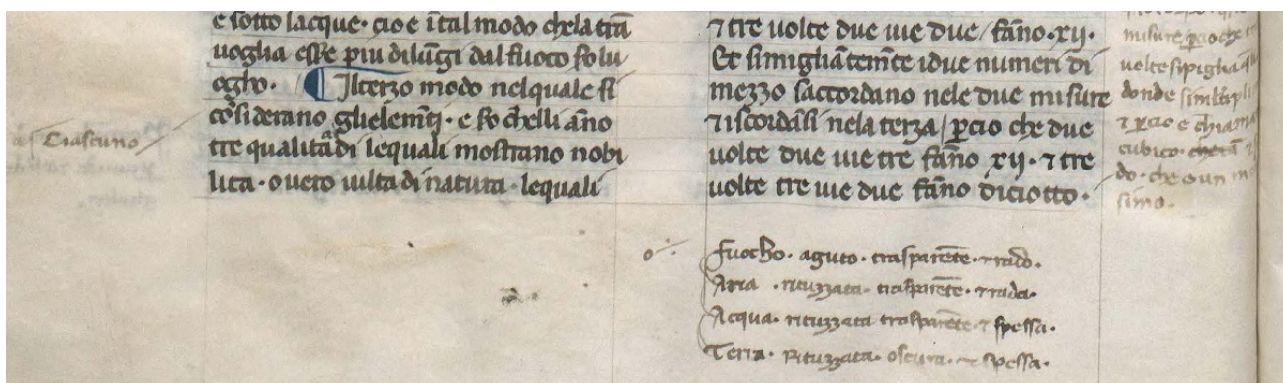 e sotto lacque · cio e ītal modo chela trā
uoglia esse͞ piu dilūgi dal fuoco so lu
ogho · ¶ Il terzo modo nel quale si
cōsiderano glielemēti · e so chelli āno
tre qualita di lequali mostrano nobi
lita · o uero uilta di natura · lequali
Ciascuno
⁊ tre uolte due uie due / fāno · xij ·
Et simigliātemēte idue numeri di
mezzo saccordano nele due misure
⁊ iscordāsi nela terza / ꝑcio che due
uolte due uie tre fāno xij · ⁊ tre
uolte tre uie due fāno diciotto ·
misure ꝑcio che
uolte si piglia
donde
⁊ ꝑcio e chiama
cubico ·
do · che o un
simo ·
Fuocho · aguto · trasparēte · ⁊ rado ·
Aria · rituzzata · trasparēte · ⁊ rada ·
Acqua · rituzzata trasparēte · ⁊ spessa ·
Terra · rituzzata · oscura · ⁊ spessa ·